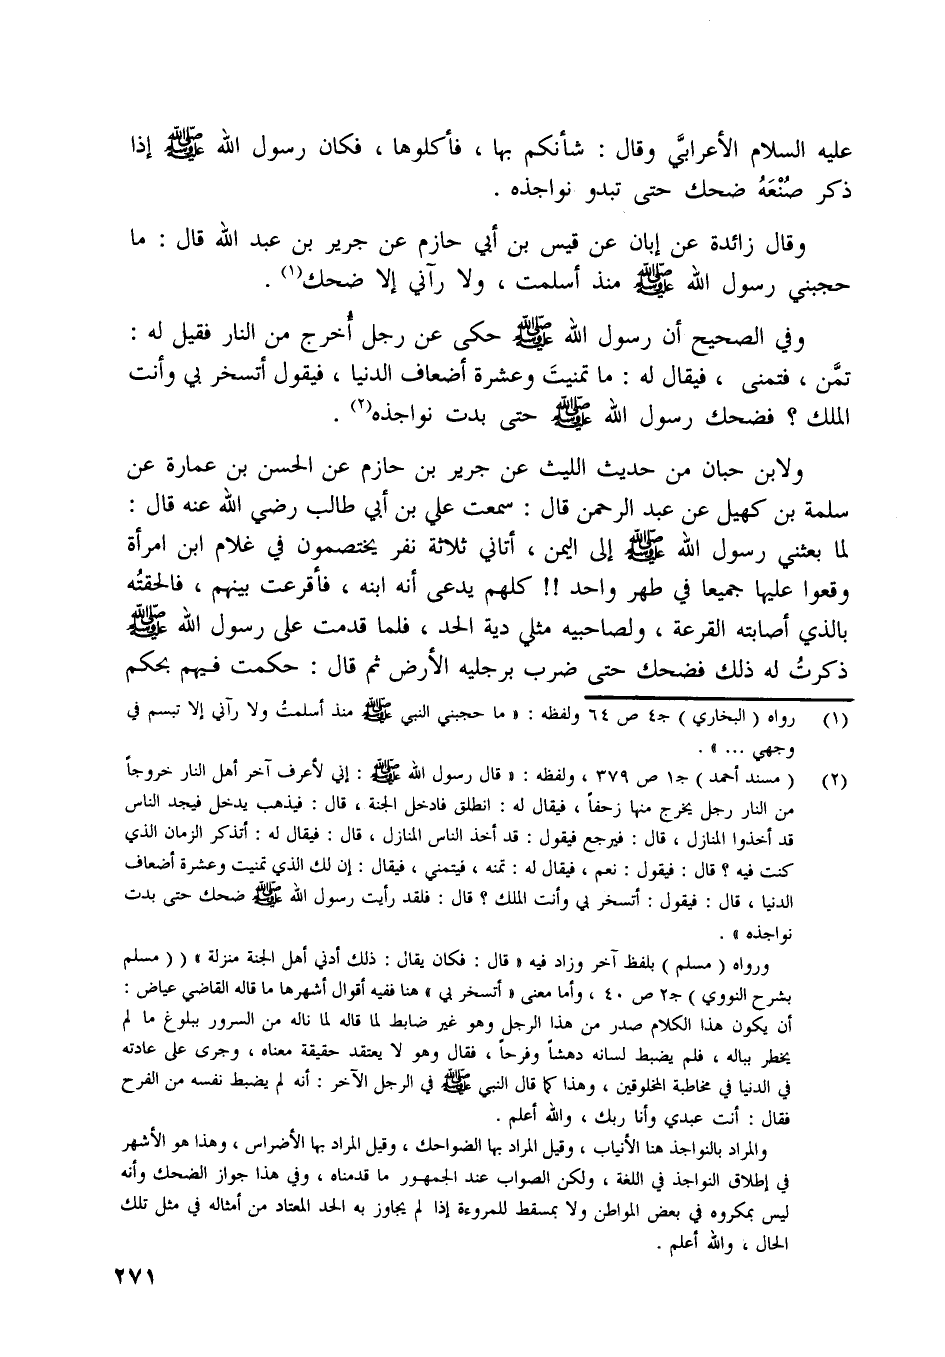 عليه السلام الأعرابيَّ وقال : شأنكم بها ، فأكلوها ، فكان رسول الله ﷺ إذا
ذكر صُنْعَهُ ضحك حتى تبدو نواجذه .
وقال زائدة عن إبان عن قيس بن أبي حازم عن جرير بن عبد الله قال : ما
حجبني رسول الله ﷺ منذ أسلمت ، ولا رآني إلا ضحك(١) .
وفي الصحيح أن رسول الله ﷺ حكى عن رجل أُخرج من النار فقيل له :
تمَّن ، فتمنى ، فيقال له : ما تمنيتَ وعشرة أضعاف الدنيا ، فيقول أتسخر بي وأنت
الملك ؟ فضحك رسول الله ﷺ حتى بدت نواجذه(٢) .
ولابن حبان من حديث الليث عن جرير بن حازم عن الحسن بن عمارة عن
سلمة بن كهيل عن عبد الرحمن قال : سمعت علي بن أبي طالب رضي الله عنه قال :
لما بعثني رسول الله ﷺ إلى اليمن ، أتاني ثلاثة نفر يختصمون في غلام ابن امرأة
وقعوا عليها جميعا في طهر واحد !! كلهم يدعى أنه ابنه ، فأقرعت بينهم ، فالحقتُه
بالذي أصابته القرعة ، ولصاحبيه مثلي دية الحد ، فلما قدمت على رسول الله ﷺ
ذكرتُ له ذلك فضحك حتى ضرب برجليه الأرض ثم قال : حكمت فيهم بحكم
(١) رواه ( البخاري ) جـ٤ ص ٦٤ ولفظه : « ما حجبني النبي ﷺ منذ أسلمتُ ولا رآني إلا تبسم في
وجهي ... » .
(٢) ( مسند أحمد ) جـ١ ص ٣٧٩ ، ولفظه : « قال رسول الله ﷺ : إني لأعرف آخر أهل النار خروجاً
من النار رجل يخرج منها زحفاً ، فيقال له : انطلق فادخل الجنة ، قال : فيذهب يدخل فيجد الناس
قد أخذوا المنازل ، قال : فيرجع فيقول : قد أخذ الناس المنازل ، قال : فيقال له : أتذكر الزمان الذي
كنت فيه ؟ قال : فيقول : نعم ، فيقال له : تمنه ، فيتمني ، فيقال : إن لك الذي تمنيت وعشرة أضعاف
الدنيا ، قال : فيقول : أتسخر بي وأنت الملك ؟ قال : فلقد رأيت رسول الله ﷺ ضحك حتى بدت
نواجذه » .
ورواه ( مسلم ) بلفظ آخر وزاد فيه « قال : فكان يقال : ذلك أدني أهل الجنة منزلة » ( ( مسلم
بشرح النووي ) جـ٢ ص ٤٠ ، وأما معنى « أتسخر بي » هنا ففيه أقوال أشهرها ما قاله القاضي عياض :
أن يكون هذا الكلام صدر من هذا الرجل وهو غير ضابط لما قاله لما ناله من السرور ببلوغ ما لم
يخطر بباله ، فلم يضبط لسانه دهشاً وفرحاً ، فقال وهو لا يعتقد حقيقة معناه ، وجرى على عادته
في الدنيا في مخاطبة المخلوقين ، وهذا كما قال النبي ﷺ في الرجل الآخر : أنه لم يضبط نفسه من الفرح
فقال : أنت عبدي وأنا ربك ، والله أعلم .
والمراد بالنواجذ هنا الأنياب ، وقيل المراد بها الضواحك ، وقيل المراد بها الأضراس ، وهذا هو الأشهر
في إطلاق النواجذ في اللغة ، ولكن الصواب عند الجمهور ما قدمناه ، وفي هذا جواز الضحك وأنه
ليس بمكروه في بعض المواطن ولا بمسقط للمروءة إذا لم يجاوز به الحد المعتاد من أمثاله في مثل تلك
الحال ، والله أعلم .
٢٧١